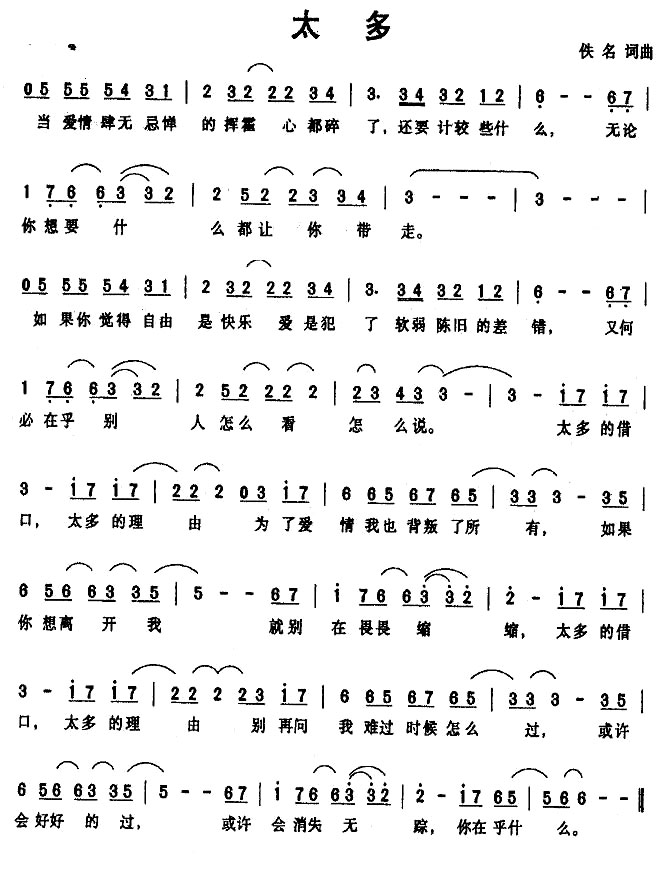 太多
佚名 词曲
05 55 54 31 | 2 32 22 34 | 3. 34 32 12 | 6 - - 67 |
当 爱情 肆无 忌惮 的 挥霍 心 都碎 了, 还要 计较 些什 么, 无论
1 76 63 32 | 2 52 23 34 | 3 - - - | 3 - - |
你 想要 什 么 都让 你 带 走。
05 55 54 31 | 2 32 22 34 | 3. 34 32 12 | 6 - - 67 |
如 果你 觉得 自由 是 快乐 爱 是犯 了 软弱 陈旧 的差 错, 又何
1 76 63 32 | 2 52 22 2 | 23 43 3 - | 3 - i7 i7 |
必 在乎 别 人 怎么 看 怎 么说。 太多 的借
3 - i7 i7 | 22 2 03 i7 | 6 65 67 65 | 33 3 - 35 |
口, 太多 的理 由 为 了爱 情 我也 背叛 了所 有, 如果
6 56 63 35 | 5 - - 67 | i 76 63 32 | 2 - i7 i7 |
你 想离 开 我 就别 在 畏畏 缩 缩, 太多 的借
3 - i7 i7 | 22 2 23 i7 | 6 65 67 65 | 33 3 - 35 |
口, 太多 的理 由 别 再问 我 难过 时候 怎么 过, 或许
6 56 63 35 | 5 - - 67 | i 76 63 32 | 2 i7 65 | 56 6 - - ‖
会 好好 的 过, 或许 会 消失 无 踪, 你在 乎什 么。